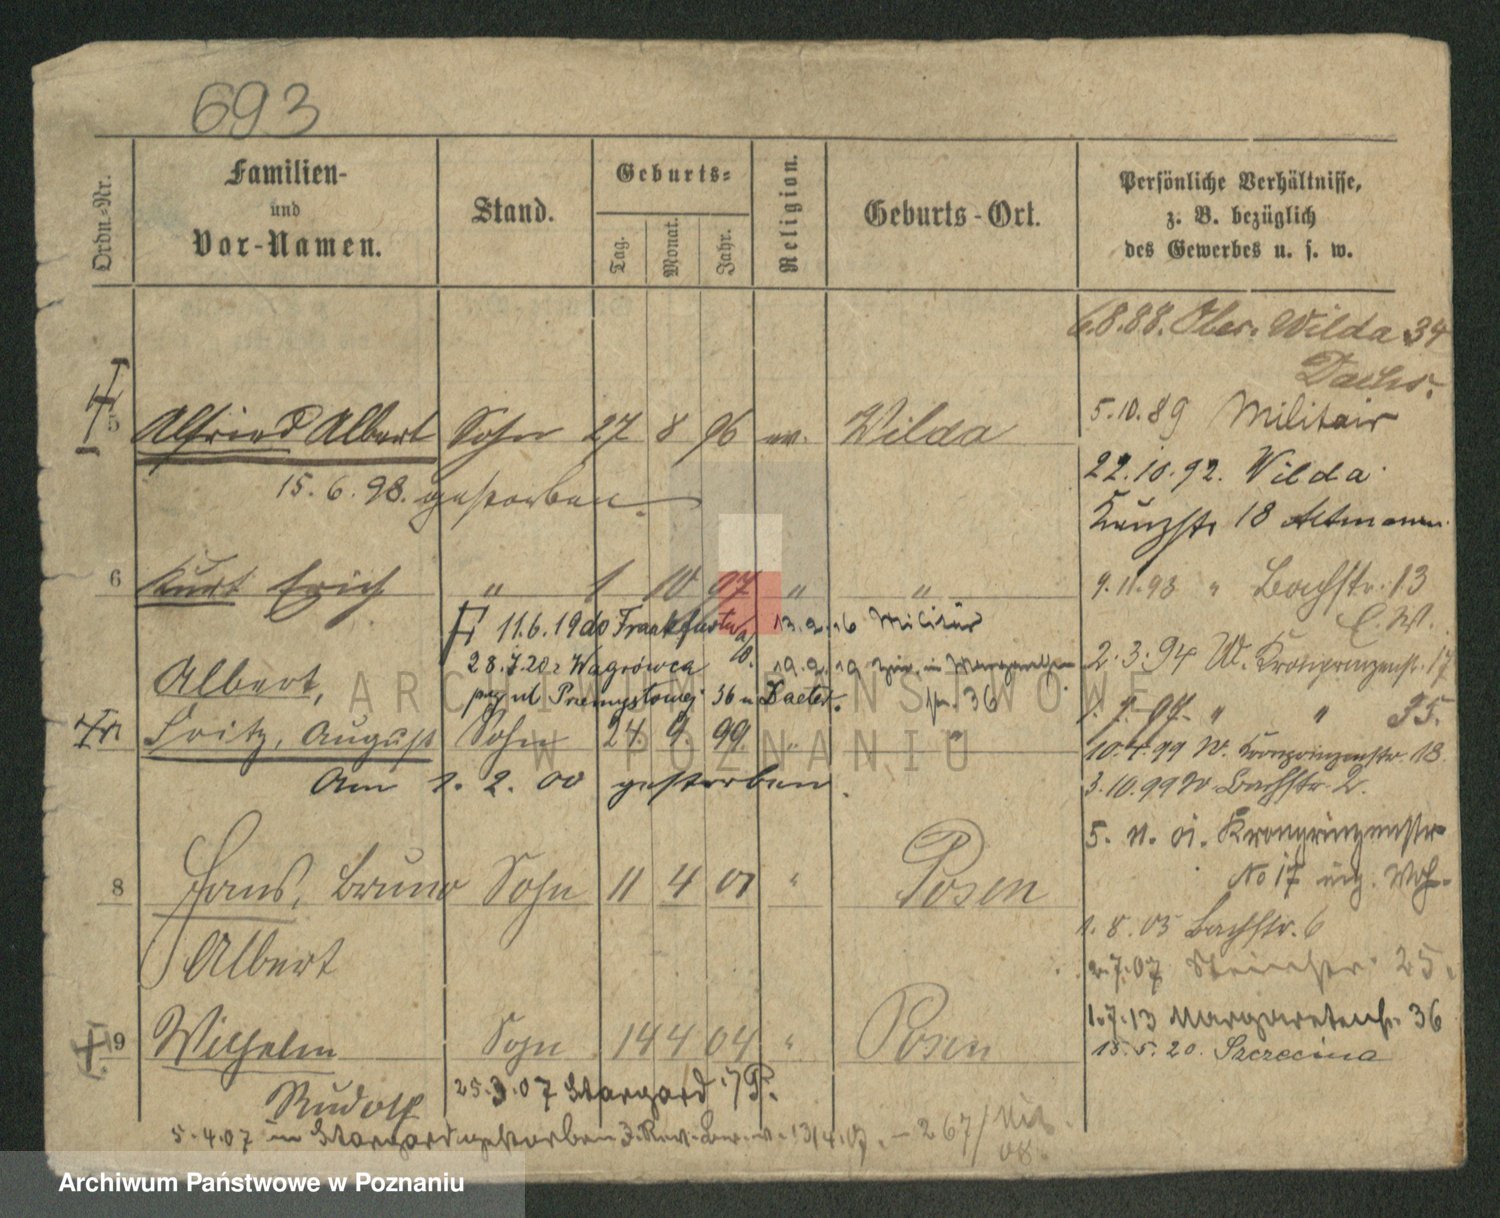 693
Ordn.-Nr.
Familien-
und
Vor-Namen.
Stand.
Geburts-
Tag.
Monat.
Jahr.
Religion.
Geburts-Ort.
Persönliche Verhältnisse,
z. B. bezüglich
des Gewerbes u. s. w.
6.8.88. Ober. Wilda 34
5 Alfried Albert Sohn 27 8 96 ev. Wilda
15.6.98. gestorben.
5.10.89 Militair
22.10.92. Wilda
18 Altmann
6 Kurt Erich " 1 10 97 " "
9.11.98 " Bachstr. 13
11.6.19 do Frankfurt a/O. 13.9.16 Militär
28.7.20 z Wągrówca 19.2.19 36
przy ul Przemysłowej 36 u Daeter.
2.3.94 W. Kronprinzenstr. 17
" " 35.
Albert,
Fritz, August Sohn 24. 9. 99. " "
Am 1. 2. 00 gestorben.
10.4.99 W. Kronprinzenstr. 18.
3.10.99 W Bachstr. 2.
5. 11. 01. Kronprinzenstr
No 17
8 Hans, Bruno Sohn 11 4 01 " Posen
Albert
1.8.05 Bachstr. 6
2.7.07 25.
1.7.13 Margaretenstr. 36
15.5.20. Szczecina
9 Wilhelm Sohn 14 4 04 " Posen
Rudolf
25.3.07 Stargard i/P.
5.4.07 in Stargard gestorben 3. Rev. 13/4.07. - 267/
08.
ARCHIWUM PAŃSTWOWE
W POZNANIU
Archiwum Państwowe w Poznaniu